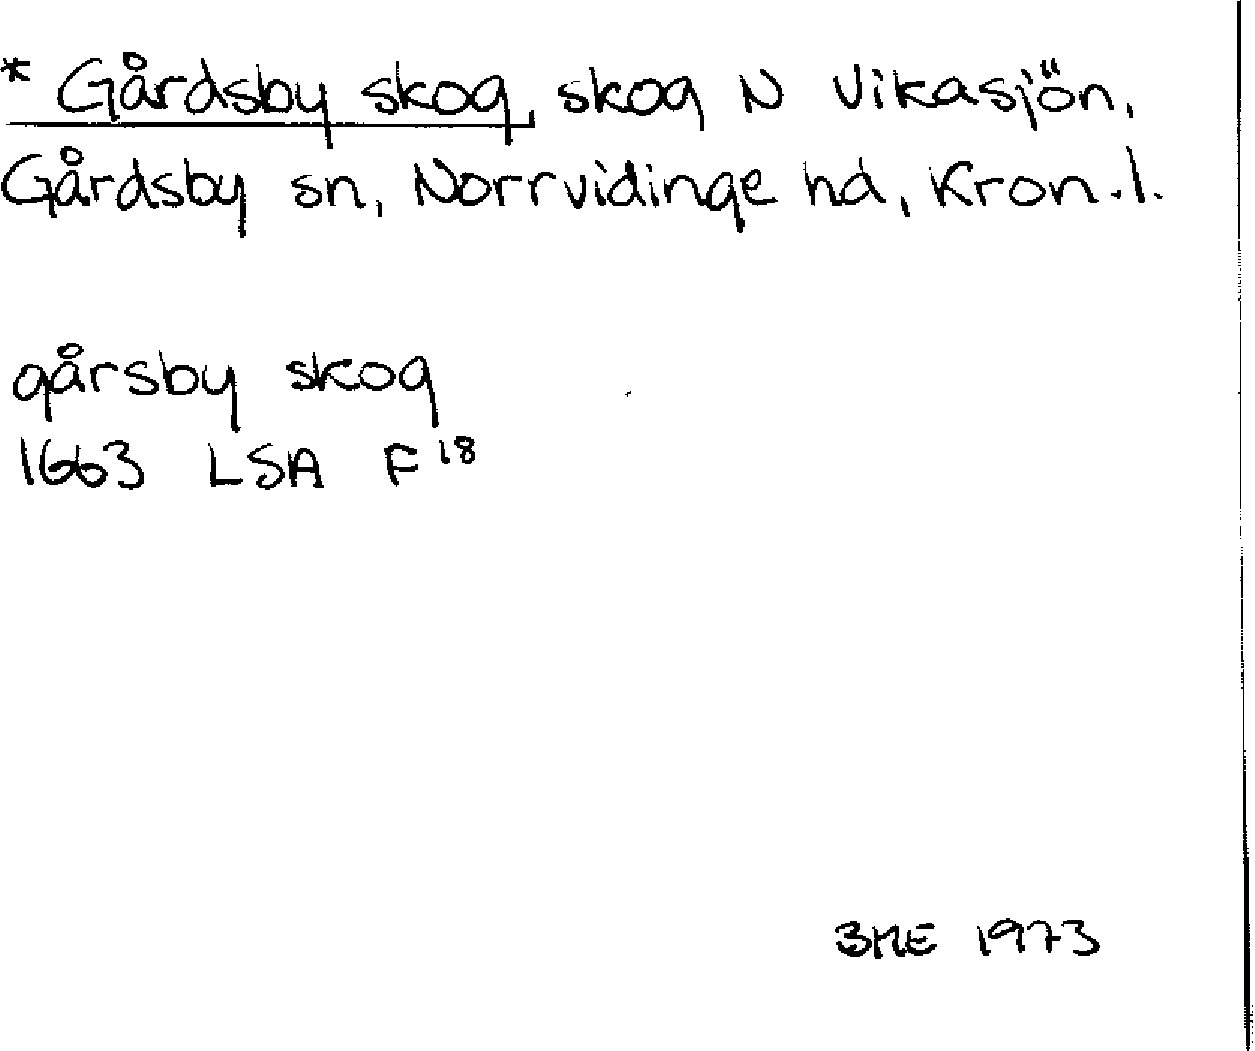 * Gårdsby skog, skog N Vikasjön,
Gårdsby sn, Norrvidinge hd, Kron.l.
gårsby skog
1663 LSA F 18
BME 1973